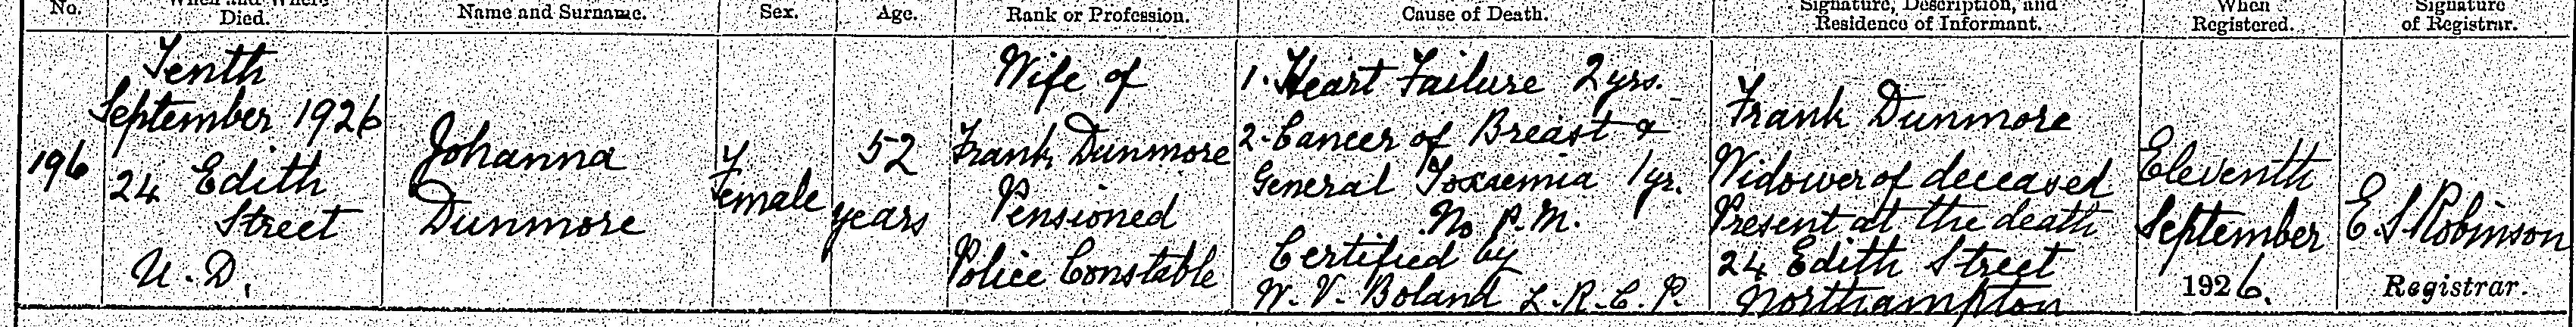 No.
When and Where
Died.
Name and Surname.
Sex.
Age.
Rank or Profession.
Cause of Death.
Signature, Description, and
Residence of Informant.
When
Registered.
Signature
of Registrar.
196
Tenth
September 1926
24 Edith
Street
U.D.
Johanna
Dunmore
Female
52
years
Wife of
Frank Dunmore
Pensioned
Police Constable
1. Heart Failure 2 yrs.
2. Cancer of Breast &
General Toxaemia 1 yr.
No P.M.
Certified by
W. V. Boland L.R.C.P.
Frank Dunmore
Widower of deceased
Present at the death
24 Edith Street
Northampton
Eleventh
September
1926.
E. S Robinson
Registrar.